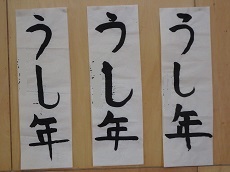 うし年
うし年
うし年